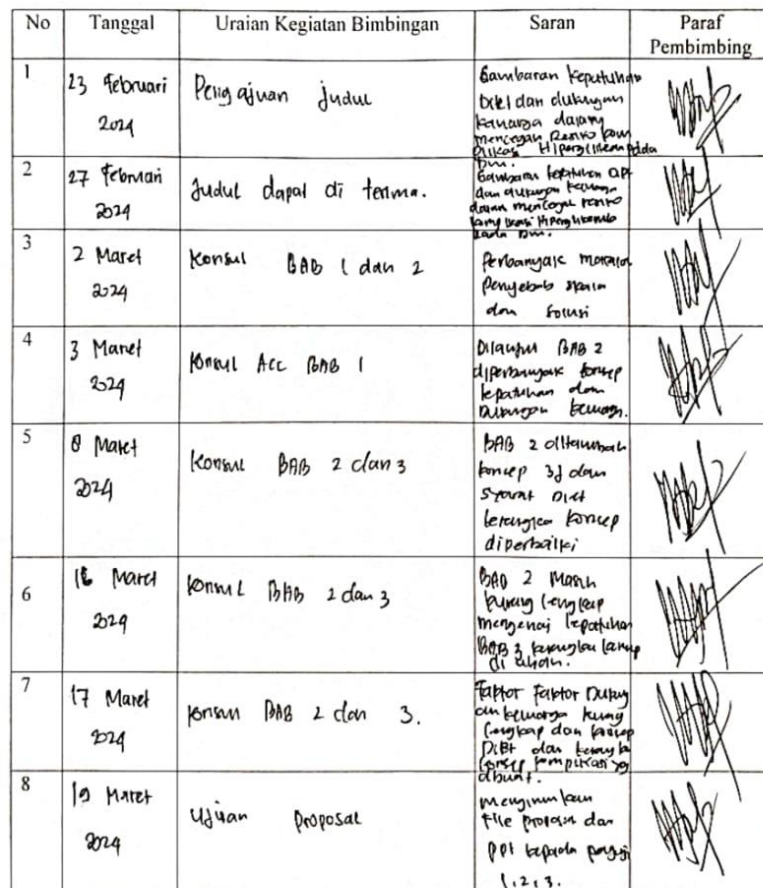 No Tanggal Uraian Kegiatan Bimbingan Saran Paraf
Pembimbing
1
23 Februari
2024
Pengajuan judul
Gambaran kepatuhan
Diet dan dukungan
keluarga dalam
mencegah Resiko kom
plikasi Hiperglikemi pada
Dm.
2
27 Februari
2024
Judul dapat di terima.
Gambaran kepatuhan Diet
dan dukungan keluarga
dalam mencegah resiko
komplikasi Hiperglikemia
pada Dm.
3
2 Maret
2024
Konsul BAB 1 dan 2
Perbanyak
Penyebab skala
dan solusi
4
3 Maret
2024
Konsul Acc BAB 1
Dilanjut BAB 2
diperbanyak konsep
kepatuhan dan
Dukungan keluarga.
5
8 Maret
2024
Konsul BAB 2 dan 3
BAB 2 ditambah
koncep 3J dan
syarat Diet
kerangka koncep
diperbaiki
6
Maret
2024
Konsul BAB 2 dan 3
BAB 2 Masih
kurang lengkap
mengenai kepatuhan
BAB 3 kerangka
7
17 Maret
2024
Konsul BAB 2 dan 3.
Faktor Faktor Dukung
an keluarga kurng
lengkap dan koncep
Diet dan kerangka
konsep komplikasi yg
dibuat.
8
19 Maret
2024
Ujian Proposal
mengirimkan
File proposal dan
ppt kepada penguji
1, 2, 3.